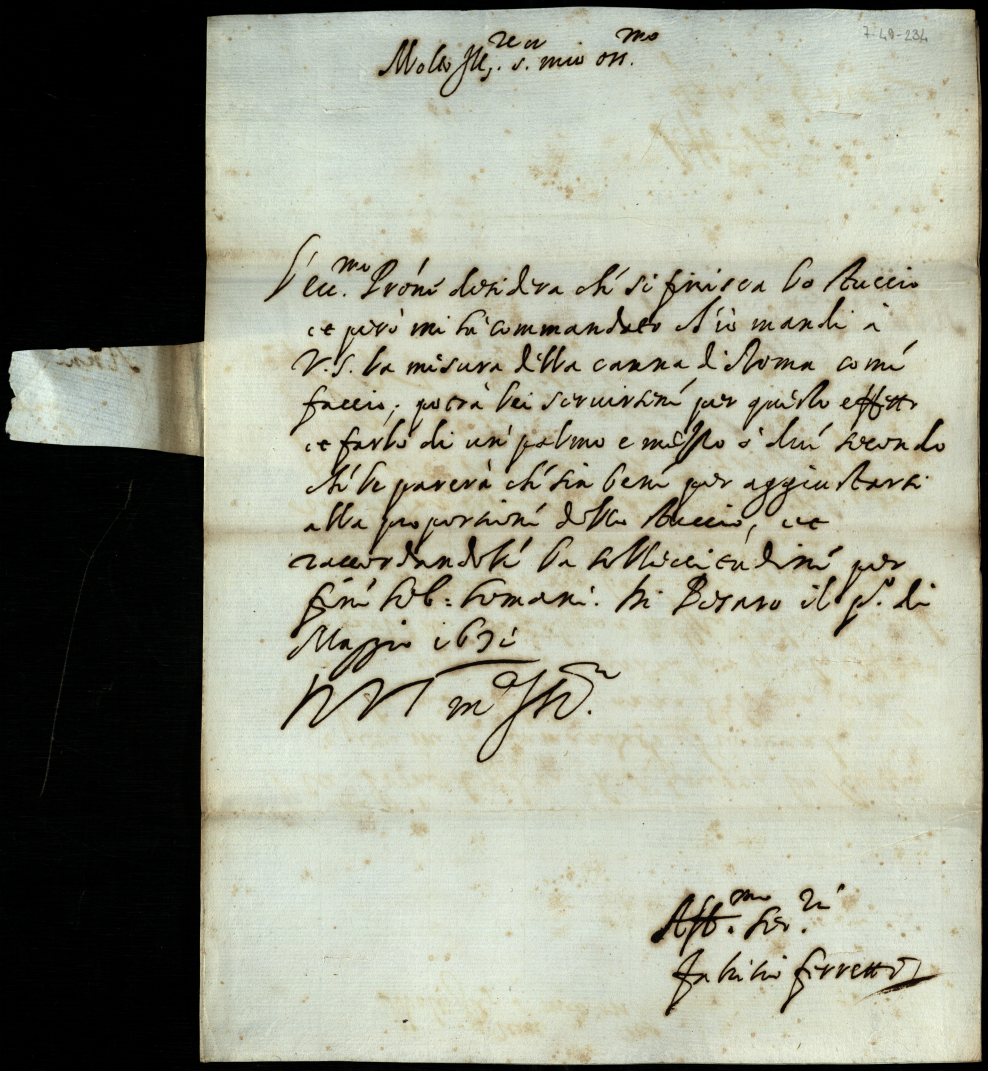 7-49-234
Molto Ill.re s. mio oss.mo
l'ecc.mo Prone desidera che si finisca lo stuccio
et però mi hà commandato ch'io mandi à
V.S. la misura della canna di Roma come
faccio; potrà lei servirsene per questo effetto
et farlo di un' palmo e mezzo ò due secondo
che le parerà che sia bene per aggiustarsi
alla proportione dello stuccio, et
raccordandole la sollecitudine per
fine le b. le mani. Di Pesaro il p.o di
Maggio
Aff.mo Ser.re
Ferretti